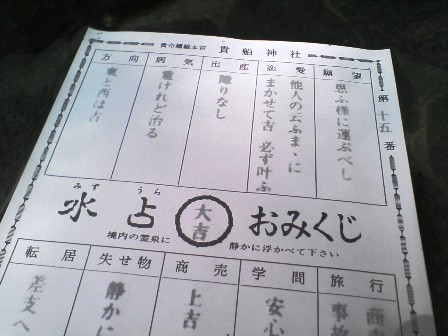 貴布禰總本宮 貴船神社
第十五番
願望
思ふ様に運ぶべし
恋愛
他人の云ふまゝに
まかせて吉 必ず叶ふ
出産
障りなし
病気
重けれど治る
方向
東と西は吉
みず うら
水占 大吉 おみくじ
境内の霊泉に 静かに浮かべて下さい
旅行
商
事
学問
安心
商売
上吉
失せ物
静かに
転居
差支へ